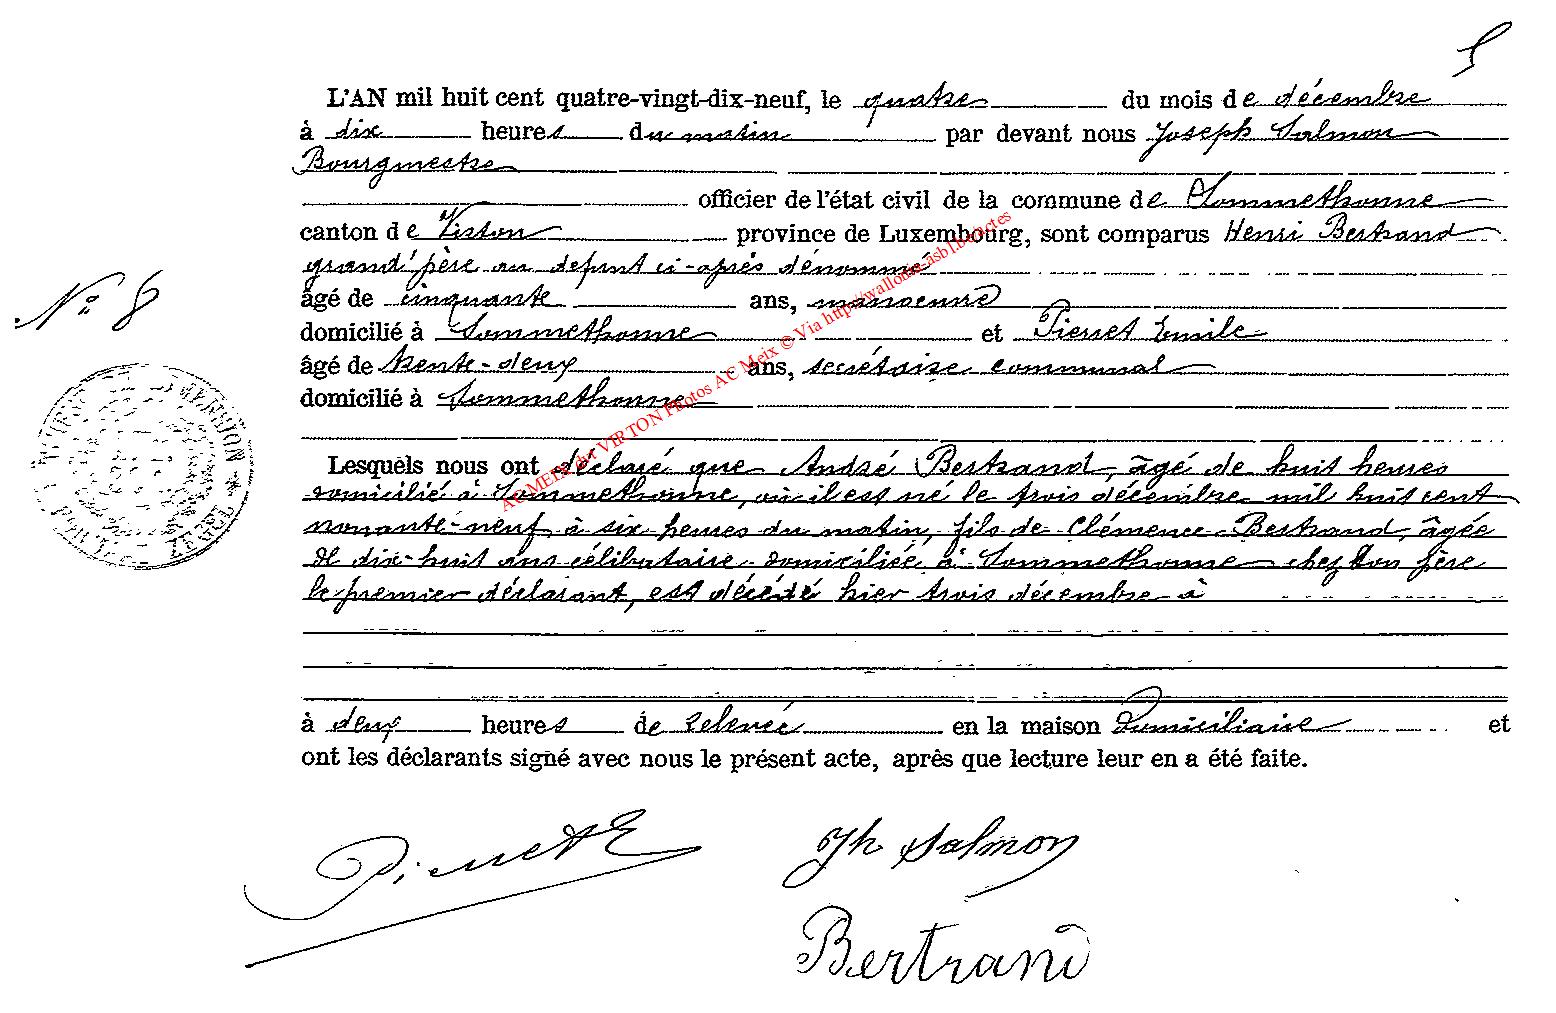 5
L'AN mil huit cent quatre-vingt-dix-neuf, le quatre du mois de décembre
à dix heures du matin par devant nous Joseph Salmon
Bourgmestre
officier de l'état civil de la commune de Sommethonne
canton de Virton province de Luxembourg, sont comparus Henri Bertrand
grand'père au defunt ci-après dénommé
âgé de cinquante ans, manoeuvre
N° 8
domicilié à Sommethonne et Pierret Emile
âgé de trente-deux ans, secrétaire communal
domicilié à Sommethonne
AC MEIX dvt VIRTON Photos AC Meix © Via http://wallonia-asbl.be/actes
Lesquels nous ont déclaré que André Bertrand, âgé de huit heures
domicilié à Sommethonne, où il est né le trois décembre mil huit cent
nonante-neuf à six heures du matin, fils de Clémence Bertrand, âgée
de dix-huit ans célibataire domiciliée à Sommethonne chez son père
le premier déclarant, est décédé hier trois décembre à
à deux heures de relevée en la maison Domiciliaire et
ont les déclarants signé avec nous le présent acte, après que lecture leur en a été faite.
Pierret E
Jh Salmon
Bertrand